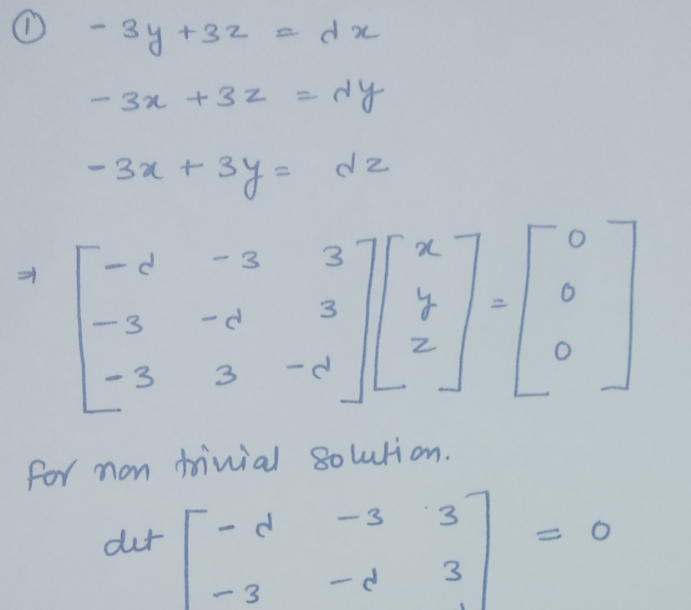 ① -3y + 3z = dx
-3x + 3z = dy
-3x + 3y = dz
⇒ [ -d -3 3 ] [ x ] = [ 0 ]
[ -3 -d 3 ] [ y ] = [ 0 ]
[ -3 3 -d ] [ z ] [ 0 ]
For non trivial solution.
det [ -d -3 3 ] = 0
[ -3 -d 3 ]